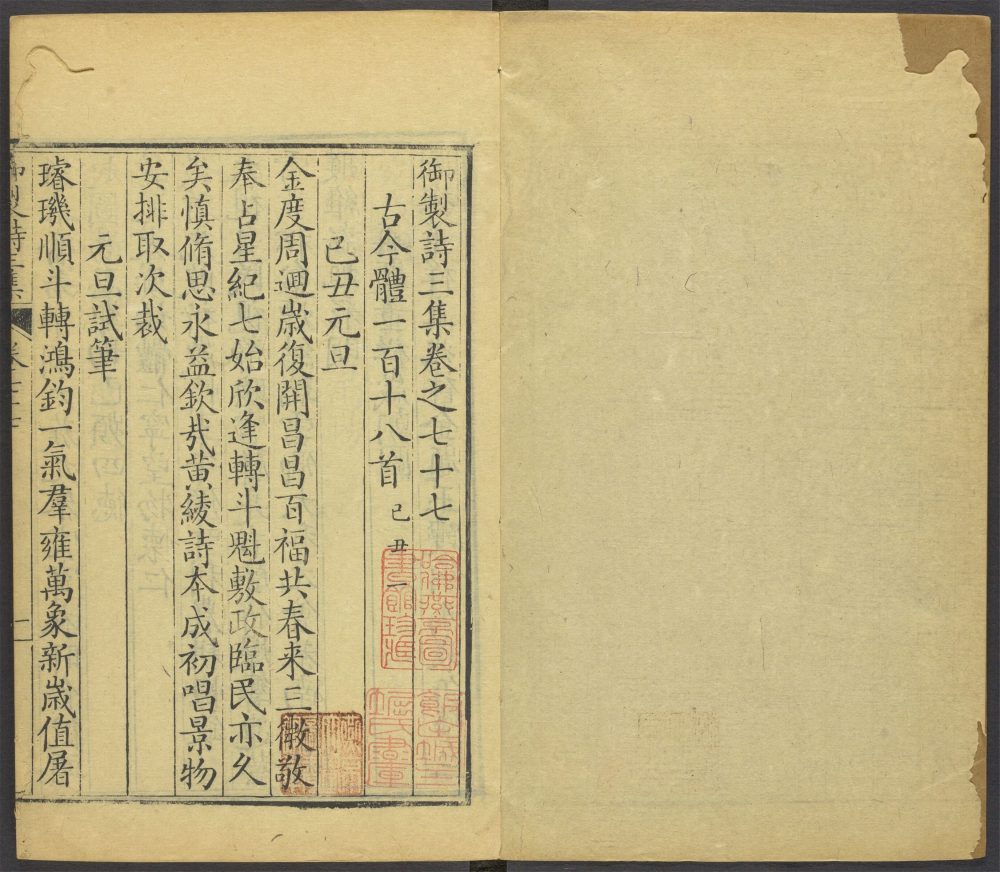 御製詩三集卷之七十七
古今體一百十八首 己丑一
己丑元旦
金度周迴嵗復開昌昌百福共春来三微敬
奉占星紀七始欣逢轉斗魁敷政臨民亦久
矣慎脩思永益欽㢤黄綾詩本成初唱景物
安排取次裁
元旦試筆
璿璣順斗轉鴻鈞一氣羣雍萬象新嵗值屠
御製詩三集 卷七十七 一
哈佛燕京圖書館珍藏